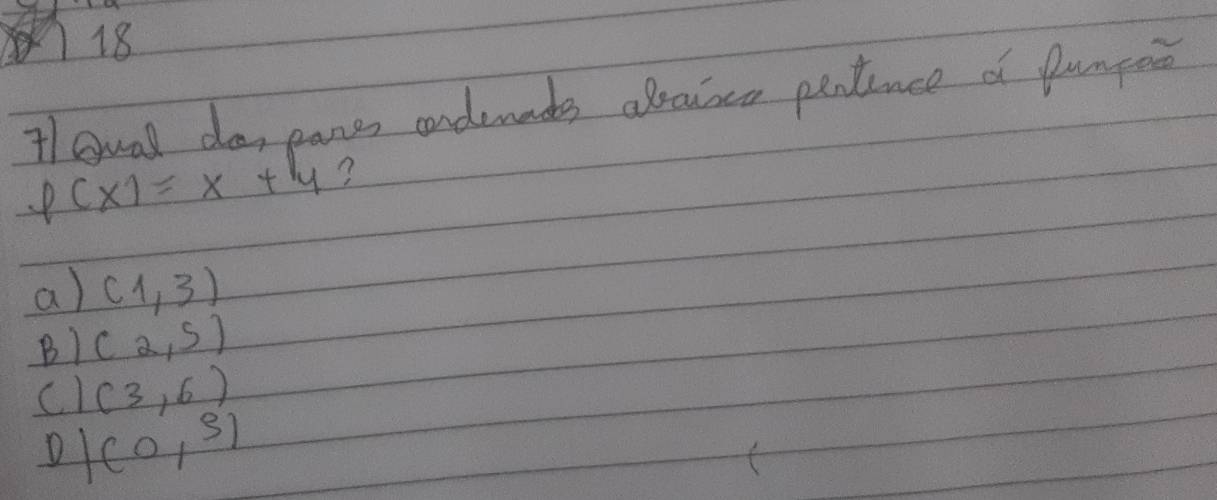 18
7) Qual dos pares ordenados abaixo pertence á função
f(x) = x + 4?
a) (1,3)
B) (2,5)
C) (3,6)
D) (0,3)